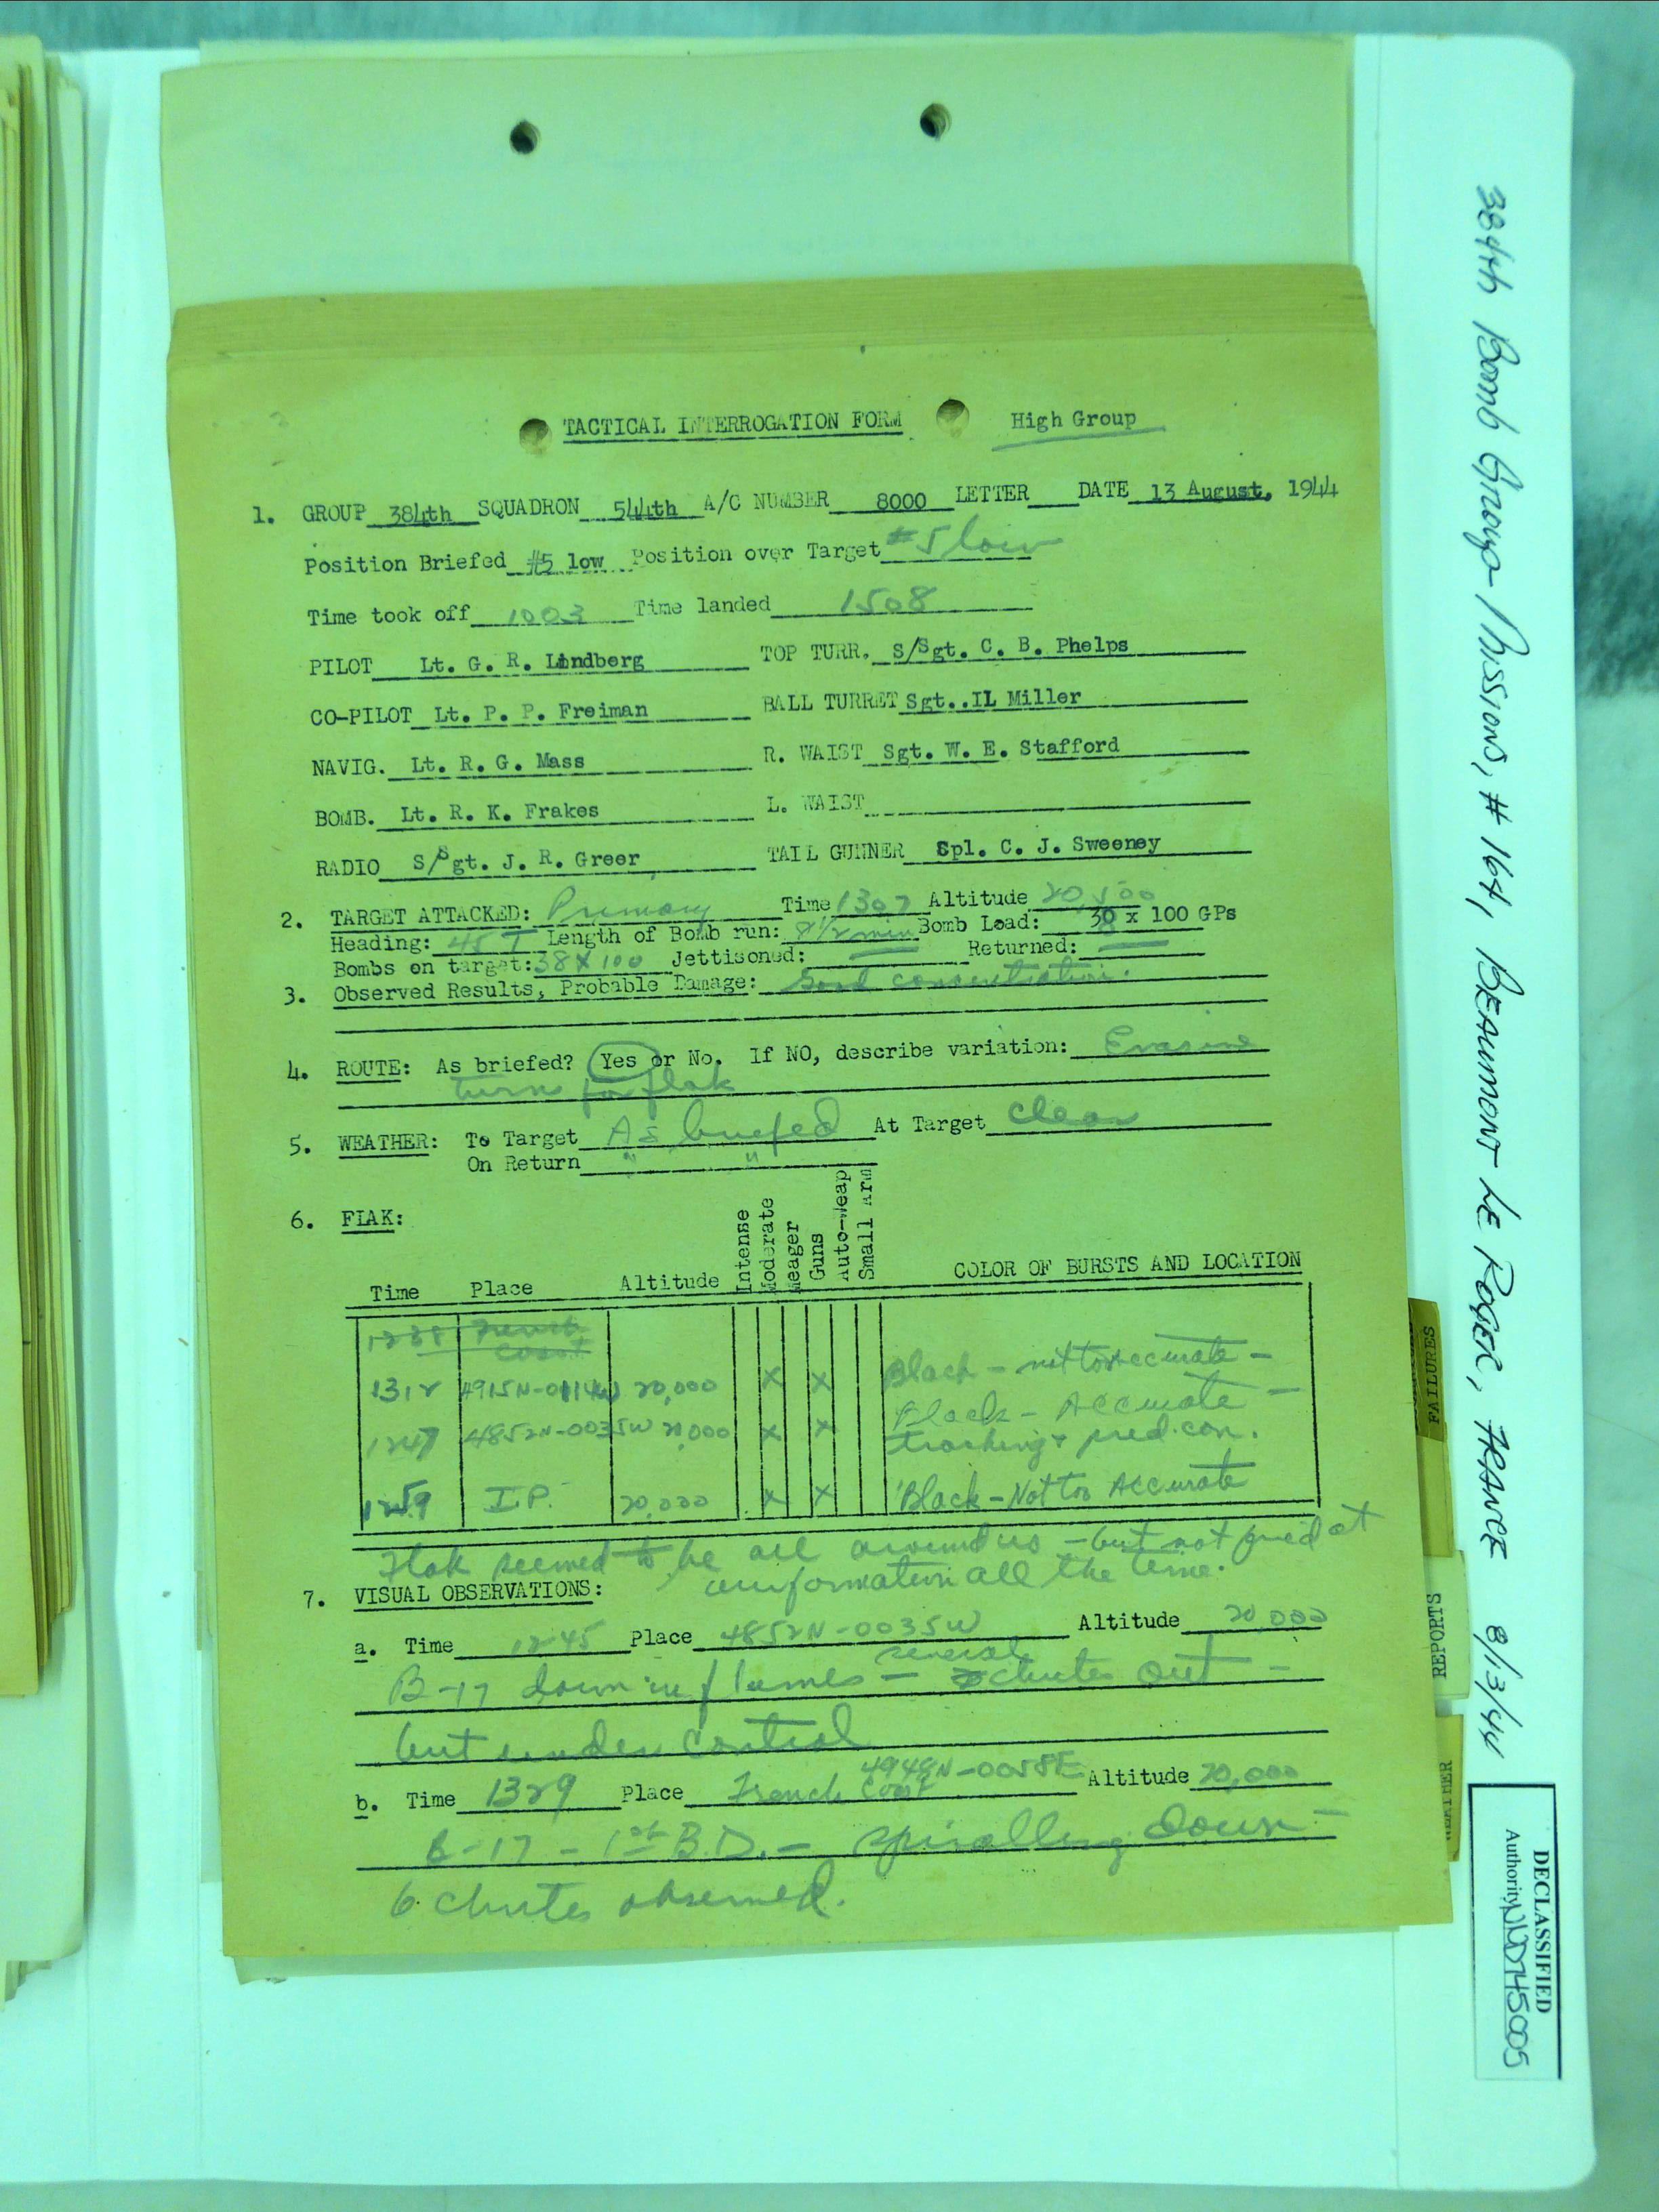 TACTICAL INTERROGATION FORM High Group
1. GROUP 384th SQUADRON 544th A/C NUMBER 8000 LETTER DATE 13 August, 1944
Position Briefed #5 low Position over Target #5 low
Time took off 1003 Time landed 1508
PILOT Lt. G. R. Lindberg TOP TURR. S/Sgt. C. B. Phelps
CO-PILOT Lt. P. P. Freiman BALL TURRET Sgt..IL Miller
NAVIG. Lt. R. G. Mass R. WAIST Sgt. W. E. Stafford
BOMB. Lt. R. K. Frakes L. WAIST
RADIO S/Sgt. J. R. Greer TAIL GUNNER Cpl. C. J. Sweeney
2. TARGET ATTACKED: Primary Time 1307 Altitude 20,500
Heading: 45 T Length of Bomb run: 8 1/2 min Bomb Load: 38 x 100 GPs
Bombs on target: 38 X 100 Jettisoned: — Returned: —
3. Observed Results, Probable Damage: Good concentration.
4. ROUTE: As briefed? Yes or No. If NO, describe variation: Evasive
turns for flak
5. WEATHER: To Target As briefed At Target clear
On Return " "
6. FLAK:
Time Place Altitude Intense Moderate Meager Guns Auto-Weap Small Arm COLOR OF BURSTS AND LOCATION
1238 French
Coast
1312 4915N-0114W 20,000 X X Black - not too accurate -
1247 4852N-0035W 20,000 X X Black - Accurate -
tracking & pred. con.
1259 I.P. 20,000 X X Black - Not too Accurate
Flak seemed to be all around us - but not fired at
our formation all the time.
7. VISUAL OBSERVATIONS:
a. Time 1245 Place 4852N-0035W Altitude 20,000
B-17 down in flames - several chutes out -
but under control
b. Time 1329 Place French Coast 4948N-0058E Altitude 20,000
B-17 - 1st B.D. - spiralling down -
6 chutes observed.
384th Bomb Group - Missions, # 164, BEAUMONT LE ROGER, FRANCE 8/13/44
FAILURES
REPORTS
WEATHER
DECLASSIFIED
Authority NND745005